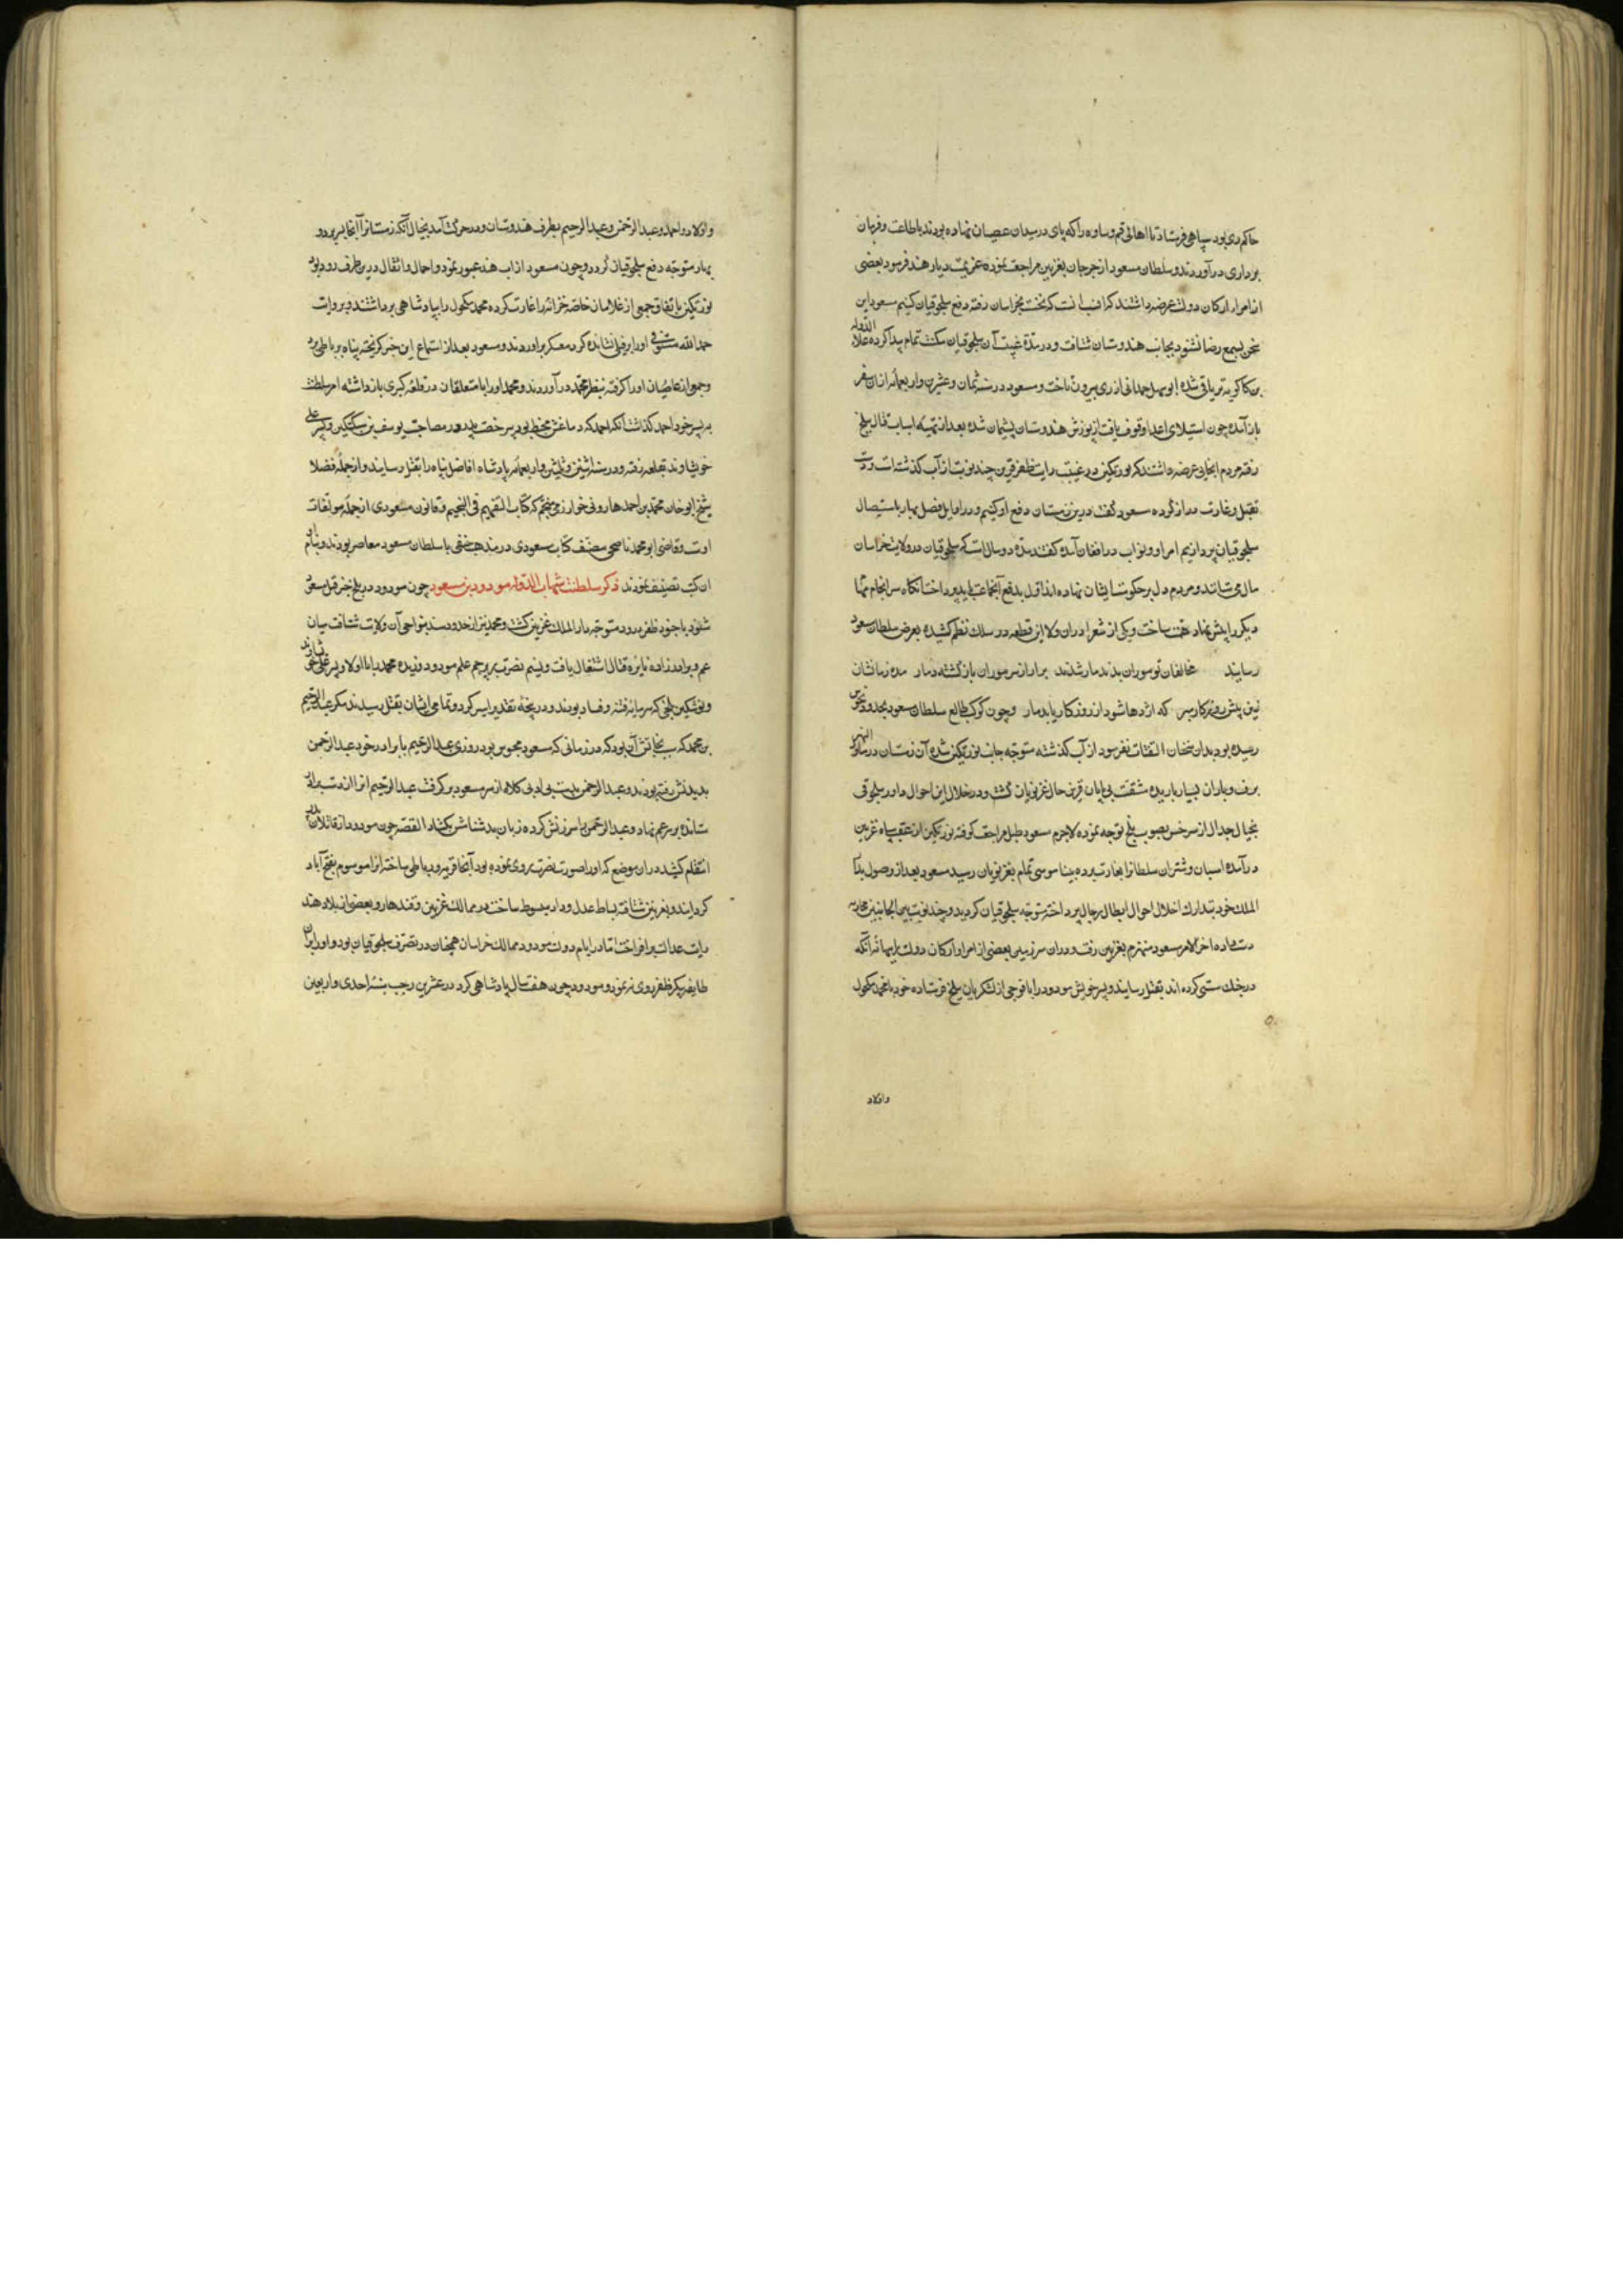 حاکم ری بود سپاهی فرستاد تا اهالی قم و ساوه را که پای در میدان عصیان نهاده بودند باطاعت و فرمان
برداری در آوردند و سلطان مسعود از جرجان بغزنین مراجعت نموده عزیمت دیار هند فرمود بعضی
از امرا و ارکان دولت عرضه داشتند که انسب آنست که نخست بخراسان رفته دفع سلجوقیان کنیم مسعود این
سخن بسمع رضا نشنود بجانب هندوستان شتافت و در مدة غیبت آن سلجوقیان مکنت تمام پیدا کرده علاء الدوله
بن کاکویه بر یاقی شده ابو سهل حمدانی از ری بیرون تاخت و مسعود در سنه ثمان و عشرین و اربعمائه از ان سفر
باز آمده چون استیلای اعدا وقوف یافت از یورش هندوستان پشیمان شده بعد از تهیه اسباب قتال ببلخ
رفته مردم انجایی عرضه داشتند که بورتکین در غیبت رایت ظفر قرین چند نوبت از آب گذشته است و دست
بقتل و غارت دراز کرده مسعود گفت درین زمستان دفع او کنیم و در اوایل فصل بهار باستیصال
سلجوقیان پردازیم امرا و نواب در افغان آمده گفتند مدة دو سال است که سلجوقیان در ولایت خراسان
مال می ستانند و مردم دل بر حکومت ایشان نهاده اند اول بدفع آنجماعت باید پرداخت آنگاه سرانجام مهمات
دیگر را پیش نهاد همت ساخت و یکی از شعرا در ان ولا این قطعه در سلک نظم کشیده بعرض سلطان مسعود
رسانید مخالفان تو موران بدند مار شدند برار از سر موران بار گشته دمار مده زمانشان
زین بیش و روزگار مبر که اژدها شود ار روزگار یابد مار و چون کوکب طالع سلطان مسعود بحدود نحس
رسیده بود بدان سخنان التفات نفرمود از آب گذشته متوجه جانب بورتکین شد و آن زمستان در ماورا النهر
برف و باران بسیار باریده مشقت بی پایان قرین حال غزنویان گشت و در خلال این احوال داود سلجوقی
بخیال جدال از سرخس بصوب بلخ توجه نموده لاجرم مسعود طبل مراجعت کوفته بورتکین از عقب سپاه غزنین
در آمده اسبان و شتران سلطانرا بغارت برده بیناموسی تمام بغزنویان رسید مسعود بعد از وصول بدار
الملک خود بتدارک اختلال احوال ابطال رجال پرداخته متوجه سلجوقیان گردید و چند نوبت بین الجانبین محاربه
دست داده اخر الامر مسعود منهزم بغزنین رفت و در ان سرزمین بعضی از امرا و ارکان دولت را ببهانه آنکه
در جنگ سستی کرده اند بقتل رسانید و پسر خویش مودود را با فوجی از لشکریان ببلخ فرستاده خود با محمد مکحول
و اولاد
و اولاد و احمد و عبد الرحمن و عبد الرحیم بطرف هندوستان در حرکت آمد بخیال آنکه زمستانرا آنجا بسر برد و در
بهار متوجه دفع سلجوقیان گردد و چون مسعود از آب هند عبور نمود و احمال و اثقال درین طرف رود بود
نوشتکین باتفاق جمعی از غلامان خاصه خزانه را غارت کرده محمد مکحول را بپادشاهی برداشتند و بروایت
حمد الله مستوفی او را بر فیلی نشانده گرد معسکر براوردند و مسعود بعد از استماع این خبر گریخته پناه برباطی برد
و جمعی از عاصیان او را گرفته بنظر محمد در آوردند و محمد او را با متعلقان در قلعه کبری باز داشته امر سلطنت
به پسر خود احمد گذاشت آنکه احمد که دماغش مخبط بود بی رخصت پدر مصاحب یوسف بن سبکتکین و پسر علی
خویشاوند بقلعه رفته و در سنه اثنین و ثلثین و اربعمائه پادشاه افاضل پناه را بقتل رسانیدند و از جمله فضلا
شیخ ابوریحان محمد بن احمد هارونی خوارزمی منجم که کتاب التفهیم فی التنجیم و قانون مسعودی از جمله مولفات
اوست و قاضی ابو محمد ناصحی مصنف کتاب مسعودی در مذهب حنفی با سلطان مسعود معاصر بودند و بنام او
ان کتب تصنیف نمودند ذکر سلطنت شهاب الدوله مودود بن مسعود چون مودود در بلخ خبر قتل مسعود
شنود با جنود ظفر ورود متوجه دار الملک غزنین گشت و محمد نیز از حدود سند بنواحی آن ولایت شتافت میان
عم و برادر زاده نایره قتال اشتعال یافت و نسیم نصرت بر پرچم علم مودود وزیده محمد را با اولاد و پسر علی خویشاوند
و نوشتکین بلخی که سرمایه فتنه و فساد بودند در پنجه تقدیر اسیر کرد و تمامی ایشان بقتل رسیدند مگر عبد الرحیم
بن محمد که سبب نجاتش آن بود که در زمانی که مسعود محبوس بود روزی عبد الرحیم با برادر خود عبد الرحمن
بدیدنش رفته بودند و عبد الرحمن بدست بی ادبی کلاه از سر مسعود بر گرفت عبد الرحیم انرا از دست برادر
ستانده بر سر عم نهاد و عبد الرحمن را سرزنش کرده زبان بدشنامش بگشاد القصه چون مودود از قاتلان پدر
انتقام کشید در ان موضع که او را صورت نصرت روی نموده بود آنجا قریه و رباطی ساخته انرا موسوم بفتح آباد
گردانید و بغزنین شتافته بساط عدل و داد مبسوط ساخت و در ممالک غزنین و قندهار و بعضی از بلاد هند
رایت عدالت برافراخت اما در ایام دولت مودود ممالک خراسان همچنان در تصرف سلجوقیان بود و او را بران
طایفه پیکر ظفر روی ننمود و مودود چون هفت سال پادشاهی کرد در عشرین رجب سنه احدی و اربعین